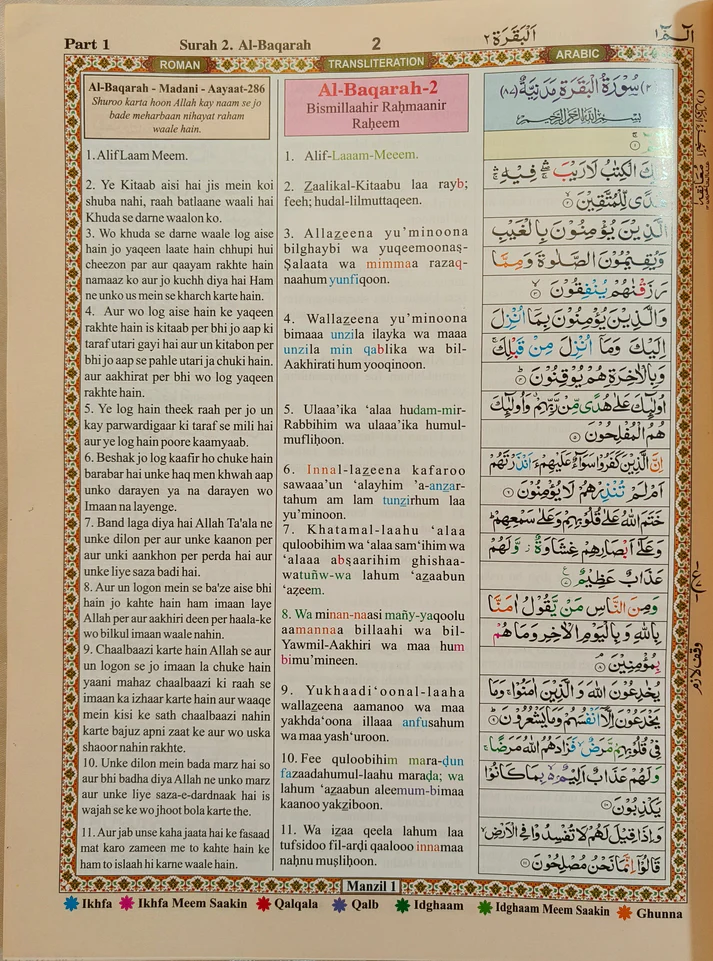 Part 1 Surah 2. Al-Baqarah 2 اَلْبَقَرَة ٢ الٓمّٓ ١
ROMAN TRANSLITERATION ARABIC
Al-Baqarah - Madani - Aayaat-286
Shuroo karta hoon Allah kay naam se jo
bade meharbaan nihayat raham
waale hain.
1. Alif Laam Meem.
2. Ye Kitaab aisi hai jis mein koi
shuba nahi, raah batlaane waali hai
Khuda se darne waalon ko.
3. Wo khuda se darne waale log aise
hain jo yaqeen laate hain chhupi hui
cheezon par aur qaayam rakhte hain
namaaz ko aur jo kuchh diya hai Ham
ne unko us mein se kharch karte hain.
4. Aur wo log aise hain ke yaqeen
rakhte hain is kitaab per bhi jo aap ki
taraf utari gayi hai aur un kitabon per
bhi jo aap se pahle utari ja chuki hain.
aur aakhirat per bhi wo log yaqeen
rakhte hain.
5. Ye log hain theek raah per jo un
kay parwardigaar ki taraf se mili hai
aur ye log hain poore kaamyaab.
6. Beshak jo log kaafir ho chuke hain
barabar hai unke haq men khwah aap
unko darayen ya na darayen wo
Imaan na layenge.
7. Band laga diya hai Allah Ta'ala ne
unke dilon per aur unke kaanon per
aur unki aankhon per perda hai aur
unke liye saza badi hai.
8. Aur un logon mein se ba'ze aise bhi
hain jo kahte hain ham imaan laye
Allah per aur aakhiri deen per haala-ke
wo bilkul imaan waale nahin.
9. Chaalbaazi karte hain Allah se aur
un logon se jo imaan la chuke hain
yaani mahaz chaalbaazi ki raah se
imaan ka izhaar karte hain aur waaqe
mein kisi ke sath chaalbaazi nahin
karte bajuz apni zaat ke aur wo uska
shaoor nahin rakhte.
10. Unke dilon mein bada marz hai so
aur bhi badha diya Allah ne unko marz
aur unke liye saza-e-dardnaak hai is
wajah se ke wo jhoot bola karte the.
11. Aur jab unse kaha jaata hai ke fasaad
mat karo zameen me to kahte hain ke
ham to islaah hi karne waale hain.
Al-Baqarah-2
Bismillaahir Raḥmaanir
Raḥeem
1. Alif-Laaam-Meeem.
2. Z̲aalikal-Kitaabu laa rayb;
feeh; hudal-lilmuttaqeen.
3. Allaz̲eena yu'minoona
bilghaybi wa yuqeemoonaṣ-
Ṣalaata wa mimmaa razaq-
naahum yunfiqoon.
4. Wallaz̲eena yu'minoona
bimaaa unzila ilayka wa maaa
unzila min qablika wa bil-
Aakhirati hum yooqinoon.
5. Ulaaa'ika 'alaa hudam-mir-
Rabbihim wa ulaaa'ika humul-
mufliḥoon.
6. Innal-laz̲eena kafaroo
sawaaa'un 'alayhim 'a-anz̲ar-
tahum am lam tunz̲irhum laa
yu'minoon.
7. Khatamal-laahu 'alaa
quloobihim wa 'alaa sam'ihim wa
'alaaa abṣaarihim ghishaa-
watuñw-wa lahum 'az̲aabun
'az̲eem.
8. Wa minan-naasi mañy-yaqoolu
aamannaa billaahi wa bil-
Yawmil-Aakhiri wa maa hum
bimu'mineen.
9. Yukhaadi'oonal-laaha
wallaz̲eena aamanoo wa maa
yakhda'oona illaaa anfusahum
wa maa yash'uroon.
10. Fee quloobihim mara-ḍun
fazaadahumul-laahu maraḍa; wa
lahum 'az̲aabun aleemum-bimaa
kaanoo yakz̲iboon.
11. Wa iz̲aa qeela lahum laa
tufsidoo fil-arḍi qaalooo innamaa
naḥnu muṣliḥoon.
٢) سُوْرَةُ الْبَقَرَةِ مَدَنِيَّةٌ (٨٧)
بِسْمِ اللّٰهِ الرَّحْمٰنِ الرَّحِيْمِ
لِكَ الْكِتٰبُ لَا رَيْبَ فِيْهِ
هُدًى لِّلْمُتَّقِيْنَ ٢
الَّذِيْنَ يُؤْمِنُوْنَ بِالْغَيْبِ
وَيُقِيْمُوْنَ الصَّلٰوةَ وَمِمَّا
رَزَقْنٰهُمْ يُنْفِقُوْنَ ٣
وَالَّذِيْنَ يُؤْمِنُوْنَ بِمَآ اُنْزِلَ
اِلَيْكَ وَمَآ اُنْزِلَ مِنْ قَبْلِكَ
وَبِالْاٰخِرَةِ هُمْ يُوْقِنُوْنَ ٤
اُولٰٓئِكَ عَلٰى هُدًى مِّنْ رَّبِّهِمْ وَاُولٰٓئِكَ
هُمُ الْمُفْلِحُوْنَ ٥
اِنَّ الَّذِيْنَ كَفَرُوْا سَوَآءٌ عَلَيْهِمْ ءَاَنْذَرْتَهُمْ
اَمْ لَمْ تُنْذِرْهُمْ لَا يُؤْمِنُوْنَ ٦
خَتَمَ اللّٰهُ عَلٰى قُلُوْبِهِمْ وَعَلٰى سَمْعِهِمْ
وَعَلٰٓى اَبْصَارِهِمْ غِشَاوَةٌ وَّلَهُمْ
عَذَابٌ عَظِيْمٌ ٧
وَمِنَ النَّاسِ مَنْ يَّقُوْلُ اٰمَنَّا
بِاللّٰهِ وَبِالْيَوْمِ الْاٰخِرِ وَمَا هُمْ
بِمُؤْمِنِيْنَ ٨
يُخٰدِعُوْنَ اللّٰهَ وَالَّذِيْنَ اٰمَنُوْا وَمَا
يَخْدَعُوْنَ اِلَّآ اَنْفُسَهُمْ وَمَا يَشْعُرُوْنَ ٩
فِيْ قُلُوْبِهِمْ مَّرَضٌ فَزَادَهُمُ اللّٰهُ مَرَضًا
وَلَهُمْ عَذَابٌ اَلِيْمٌۢ بِمَا كَانُوْا
يَكْذِبُوْنَ ١٠
وَاِذَا قِيْلَ لَهُمْ لَا تُفْسِدُوْا فِي الْاَرْضِ
قَالُوْٓا اِنَّمَا نَحْنُ مُصْلِحُوْنَ ١١
وقف لازم
Manzil 1
Ikhfa Ikhfa Meem Saakin Qalqala Qalb Idghaam Idghaam Meem Saakin Ghunna